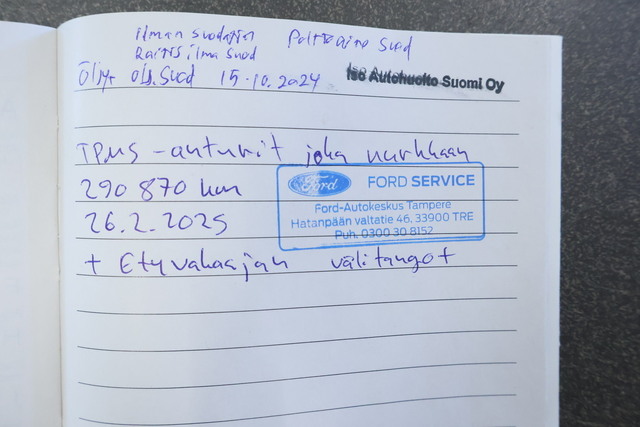 ilman suodatin Polttoaine suod
Raitis ilma suod
Öljyt ölj. suod 15.10.2024 Iso Autohuolto Suomi Oy
TPMS-anturit joka nurkkaan
290 870 km
Ford FORD SERVICE
26.2.2025
Ford-Autokeskus Tampere
Hatanpään valtatie 46, 33900 TRE
Puh. 0300 30 8152
+ Etuvakaajan välitangot